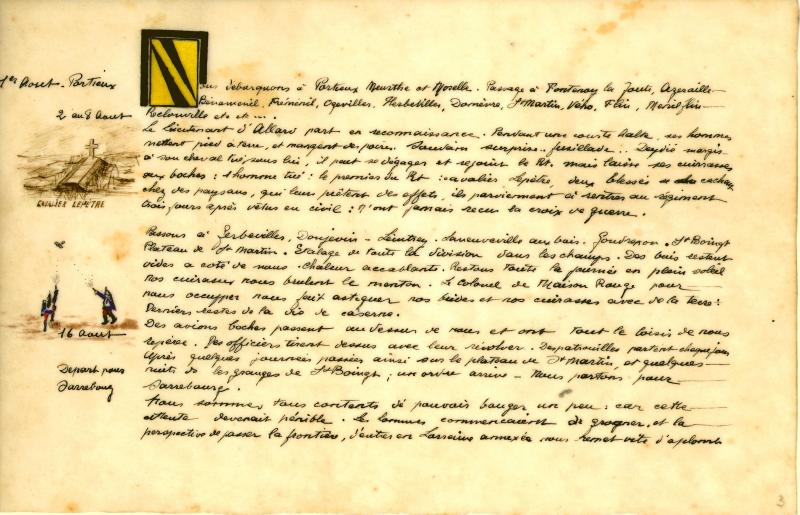 1er Aout - Portieux
Nous débarquons à Portieux Meurthe et Moselle. Passage à Fontenoy la Joute, Azerailles
2 au 8 Aout
Bénaménil, Fréménil, Ogevillers, Herbévillers, Domèvre, St Martin, Vého, Flin, Mesnil flin
Reclonville etc etc ...
Le Lieutenant d'Allard part en reconnaissance. Pendant une courte halte, ses hommes
mettent pied à terre, et mangent des poires. Soudain surprise, fusillade..
à son cheval tué sous lui, il peut se dégager et rejoint le Rt. mais laisse ses cuirasses
aux boches : 1 homme tué : le premier du Rt : cavalier Lepêtre, deux blessés se cachent
chez des paysans, qui leur prêtent des effets, ils parviennent à rentrer au régiment
trois jours après vêtus en civil : n'ont jamais reçu la croix de guerre.
CAVALIER LEPETRE
Passons à Gerbeviller, Donjevin - Leintrey. Laneuveville au bois. Gondrexon. St Boingt
Plateau de St Martin. Etalage de toute la division dans les champs. Des bois restent
vides à coté de nous. Chaleur accablante. Restons toute la journée en plein soleil
Nos cuirasses nous brulent le menton. Le Colonel de Maison Rouge pour
nous occuper nous fait astiquer nos brides et nos cuirasses avec de la terre :
Derniers restes de la vie de caserne.
Des avions boches passent au dessus de nous et ont tout le loisir de nous
repérer. Les officiers tirent dessus avec leur révolver. Des patrouilles partent chaque jour
16 Aout
Après quelques journées passées ainsi sur le plateau de St Martin, et quelques
nuits ds les granges de St Boingt ; un ordre arrive - Nous partons pour
Sarrebourg.
Depart pour
Sarrebourg
Nous sommes tous contents de pouvoir bouger un peu : car cette
attente devenait pénible. Les hommes commencaient à grogner, et la
perspective de passer la frontière, d'entrer en Lorraine annexée nous remet vite d'aplomb
3